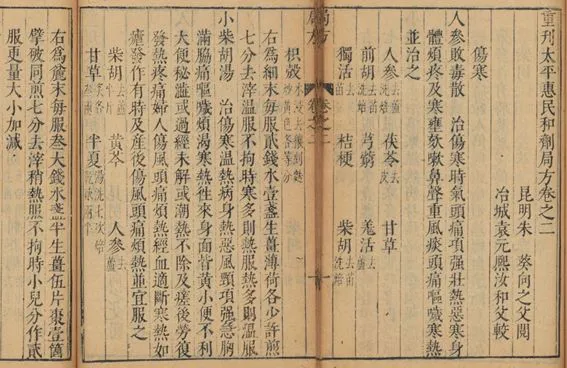 重刊太平惠民和劑局方卷之二
昆明朱 葵向之父閱
冶城袁元熙汝和父較
傷寒
人參敗毒散 治傷寒時氣頭痛項强壯熱惡寒身
體煩疼及寒壅欬嗽鼻塞聲重風痰頭痛嘔噦寒熱
並治之
人參去蘆 茯苓去皮 甘草
前胡去苗洗焙 芎藭 羗活去苗
獨活去苗 桔梗 柴胡去苗洗焙
局方 卷之二
枳殼
右為細末每服貳錢水壹盞生薑薄荷各少許煎
七分去滓温服不拘時寒多則熱服熱多則温服
小柴胡湯 治傷寒温熱病身熱惡風頸項强急胸
滿脇痛嘔噦煩渴寒熱徃來身面皆黄小便不利
大便秘澁或過經未解或潮熱不除及瘥後勞復
發熱疼痛婦人傷風頭痛煩熱經血適斷寒熱如
瘧發作有時及產後傷風頭痛煩熱並宜服之
柴胡去蘆半斤 黄芩 人參去蘆
甘草 半夏湯洗七次焙
右為麄末每服叁大錢水盞半生薑伍片棗壹箇
擘破同煎七分去滓稍熱服不拘時小兒分作貳
服更量大小加減